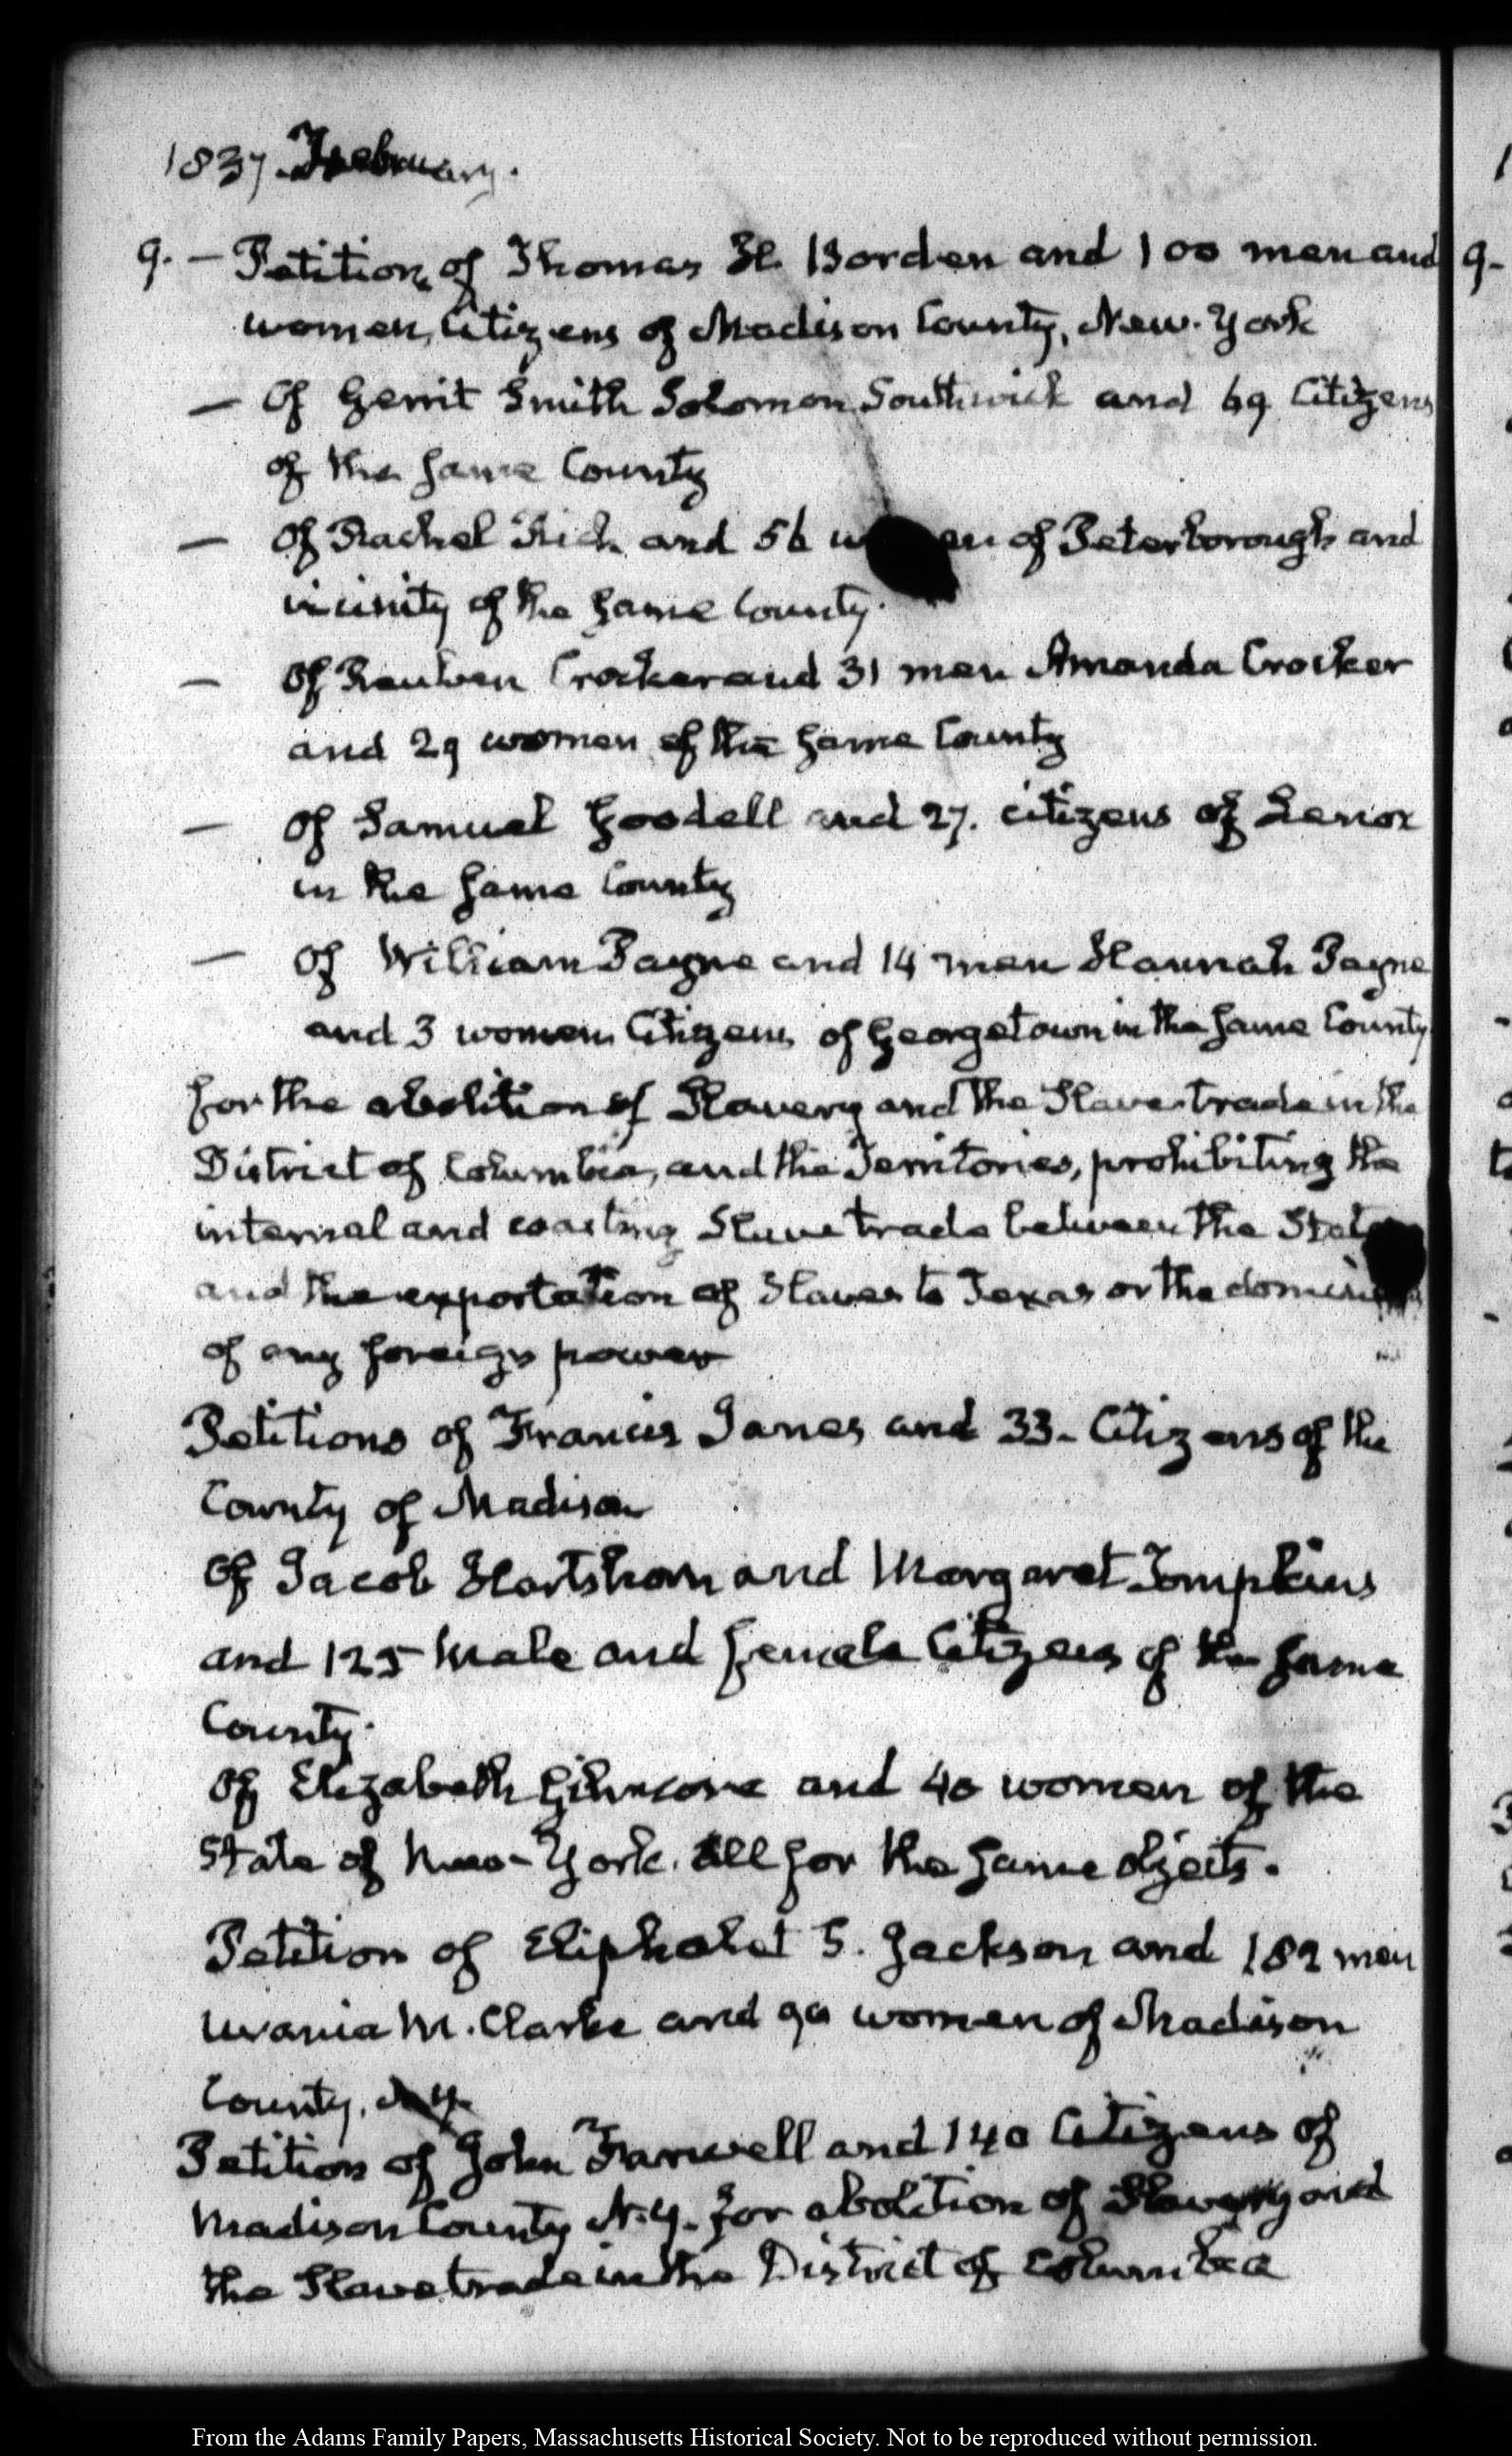 1837. February.
9. — Petition of Thomas H. Borden and 100 men and
women, Citizens of Madison County, New-York
— Of Gerrit Smith Solomon Southwick and 69 Citizens
of the same County
— Of Rachel Rich and 56 women of Peterborough and
vicinity of the same County.
— Of Reuben Crocker and 31 men Amanda Crocker
and 29 women of the same County
— Of Samuel Goodell and 27. citizens of Lenox
in the same County
— Of William Payne and 14 men Hannah Payne
and 3 women Citizens of Georgetown in the same County
for the abolition of Slavery and the Slave-trade in the
District of Columbia, and the Territories, prohibiting the
internal and coasting Slave trade between the States
and the exportation of Slaves to Texas or the dominions
of any foreign power
Petitions of Francis Janes and 33- Citizens of the
County of Madison
Of Jacob Hartshorn and Margaret Tompkins
and 125 Male and female Citizens of the same
County.
Of Elizabeth and 40 women of the
State of New-York. All for the same objects.
Petition of Eliphalet S. Jackson and 182 men
Urania M. Clarke and 90 women of Madison
County. N.Y.
Petition of John Farwell and 140 Citizens of
Madison County N.Y. for abolition of Slavery and
the Slave trade in the District of Columbia
9-
From the Adams Family Papers, Massachusetts Historical Society. Not to be reproduced without permission.